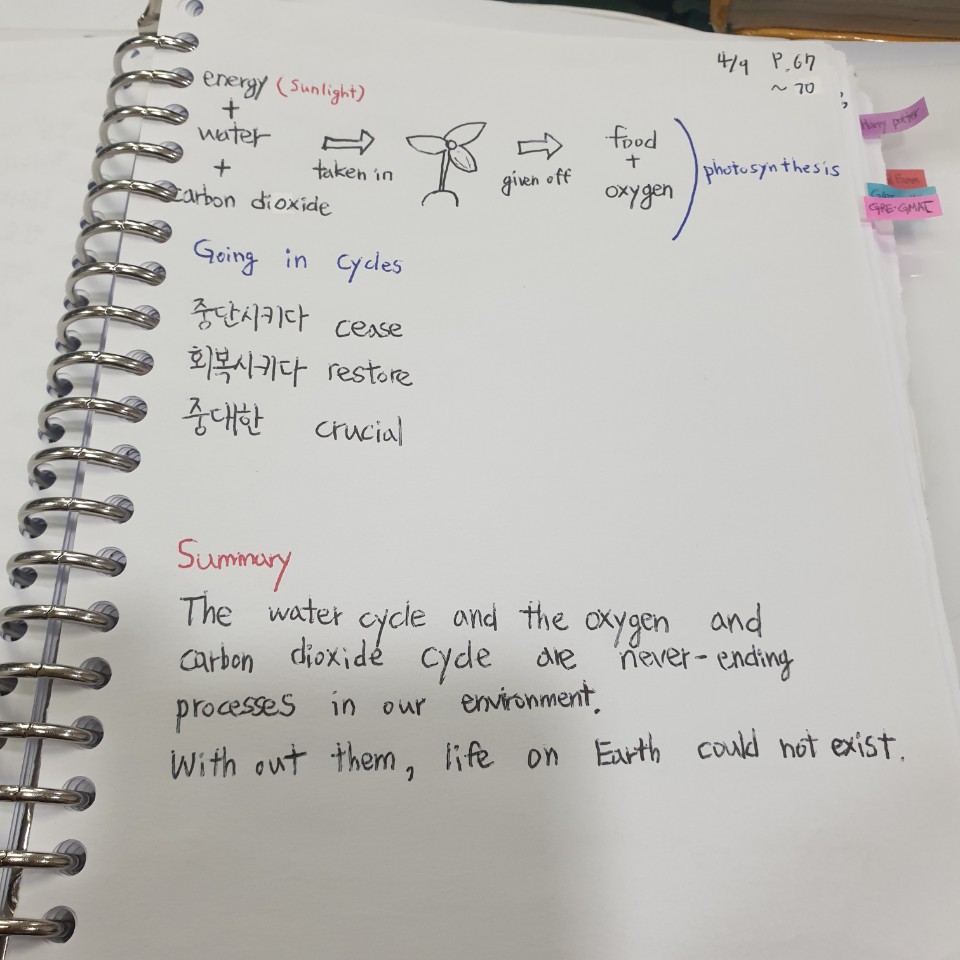 4/9 P.67
~ 70
energy (Sunlight)
+
water
+
carbon dioxide
taken in
given off
food
+
oxygen
photosynthesis
Going in cycles
중단시키다 cease
회복시키다 restore
중대한 crucial
Summary
The water cycle and the oxygen and
carbon dioxide cycle are never-ending
processes in our environment.
With out them, life on Earth could not exist.
Harry potter
GRE·GMAT